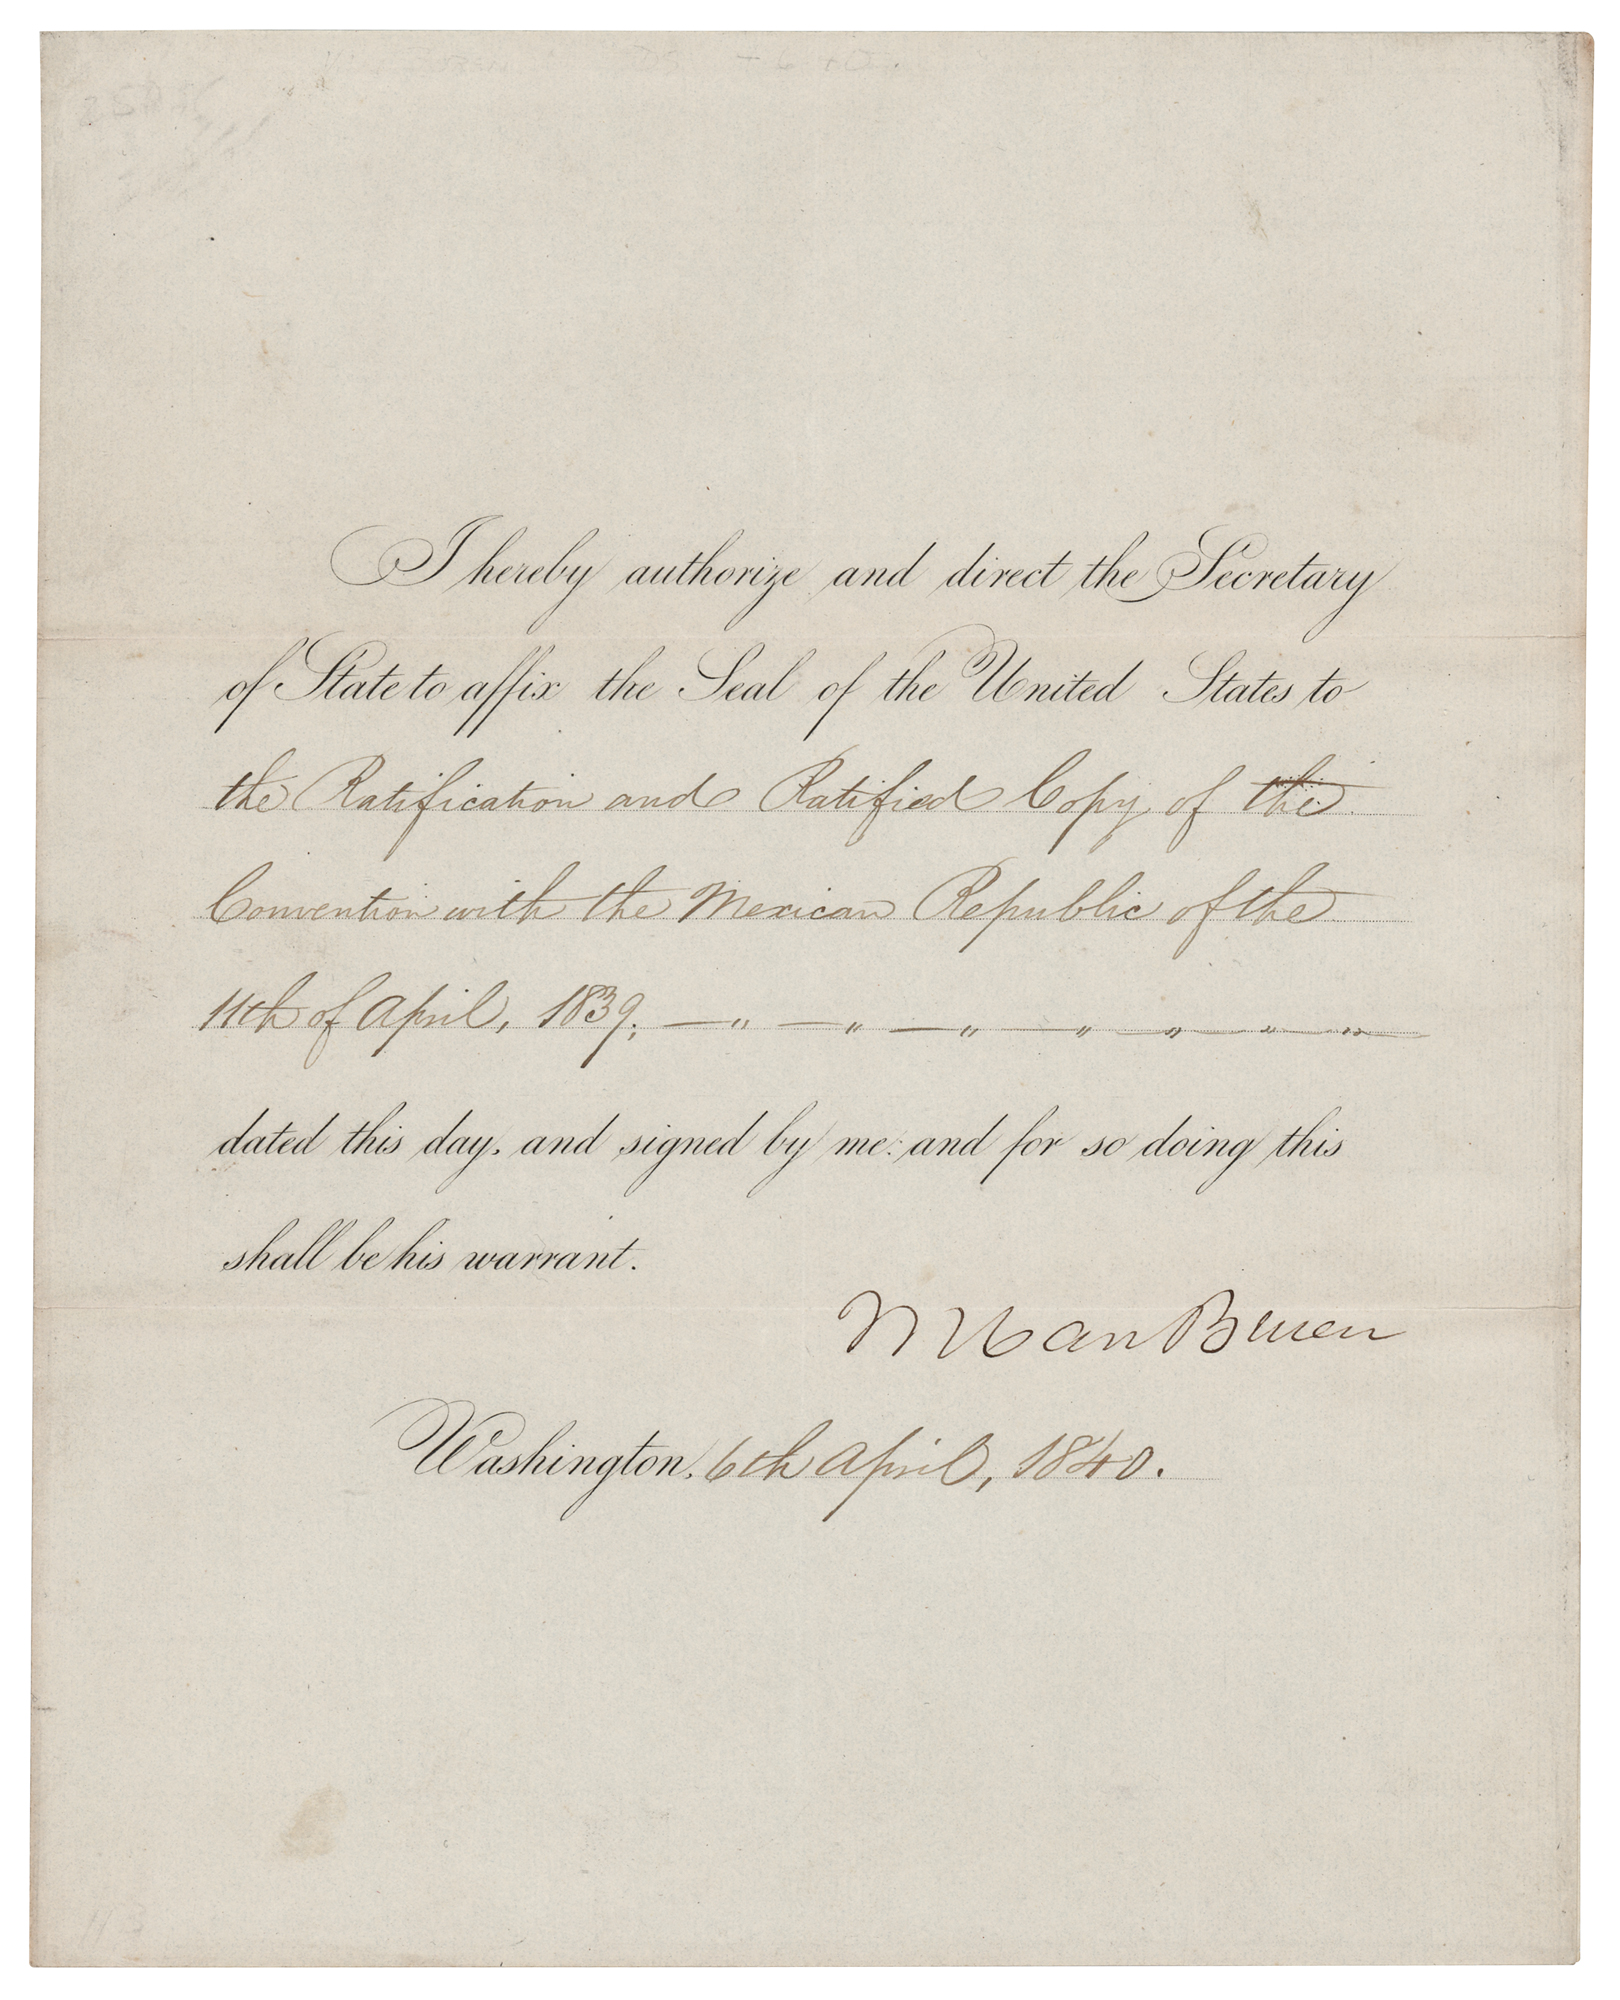 I hereby authorize and direct the Secretary
of State to affix the Seal of the United States to
the Ratification and Ratified Copy of the
Convention with the Mexican Republic of the
11th of April, 1839; — " — " — " — " — " — " — "
dated this day, and signed by me: and for so doing this
shall be his warrant.
M Van Buren
Washington, 6th April, 1840.